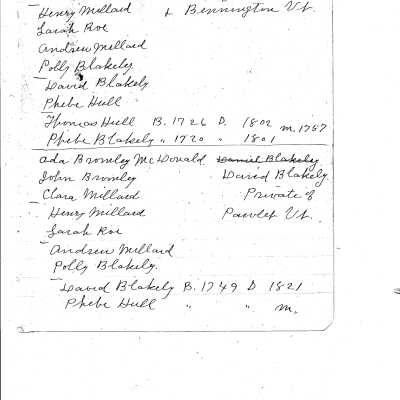 Henry Millard & Bennington Vt.
Sarah Roe
Andrew Millard
Polly Blakely
David Blakely
Phebe Hull
Thomas Hull B. 1726 D. 1802 m. 1757
Phebe Blakely " 1720 " 1801
Ada Bromley McDonald Daniel Blakeley
John Bromley David Blakely
Clara Millard Private of
Henry Millard Pawlet Vt.
Sarah Roe
Andrew Millard
Polly Blakely.
David Blakely B. 1749 D 1821
Phebe Hull " " m.